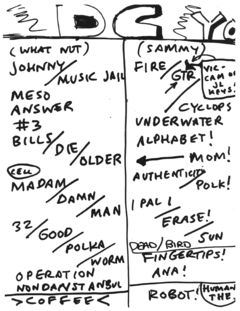 DC
(WHAT NUT)
JOHNNY/
MUSIC JAIL
MESO
ANSWER
#3
BILLS/
DIE/
OLDER
CELL
MADAM/
DAMN/
MAN
32/
GOOD/
POLKA/
WORM
OPERATION
NONDANSTANBUL
>COFFEE<
(SAMMY)
FIRE/
GTR
VIC-
CAM ON
JL
KEYS!
CYCLOPS
UNDERWATER
ALPHABET!
MOM!
AUTHENTICITY/
POLK!
1 PAL 1/
ERASE!
DEAD/BIRD/
SUN
FINGERTIPS!
ANA!
ROBOT!
(HUMAN
THE